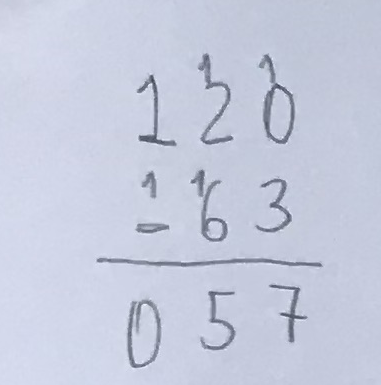 1 1
120
1 1
- 63
057